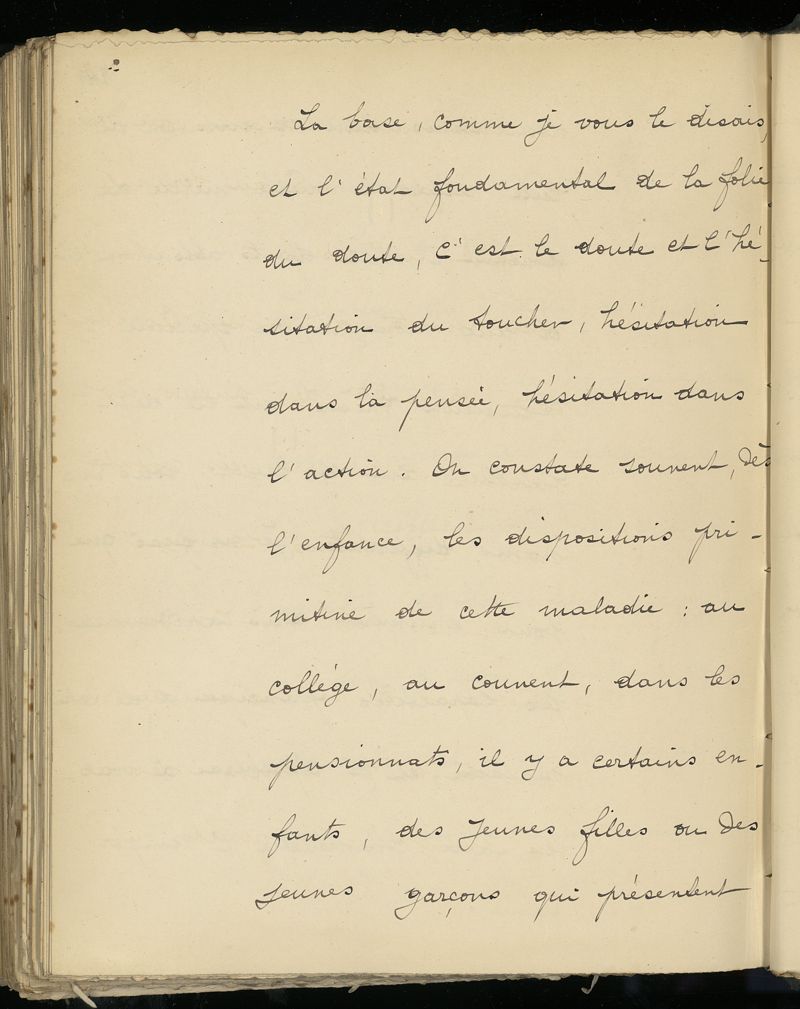 La base, comme je vous le disais,
et l'état fondamental de la folie
du doute, c'est le doute et l'hé-
sitation du toucher, hésitation
dans la pensée, hésitation dans
l'action. On constate souvent, dès
l'enfance, les dispositions pri-
mitive de cette maladie : au
collège, au couvent, dans les
pensionnats, il y a certains en-
fants, des jeunes filles ou des
jeunes garçons qui présentent